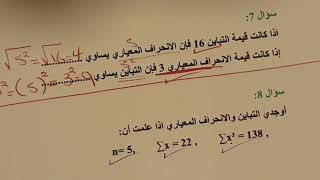 سؤال 7:
اذا كانت قيمة التباين 16 فإن الانحراف المعياري يساوي √S² = √16 = 4
اذا كانت قيمة الانحراف المعياري 3 فإن التباين يساوي S² = (S)² = 3² = 9
سؤال 8:
أوجدي التباين والانحراف المعياري اذا علمت أن:
n= 5, ∑x = 22 , ∑x² = 138 ,